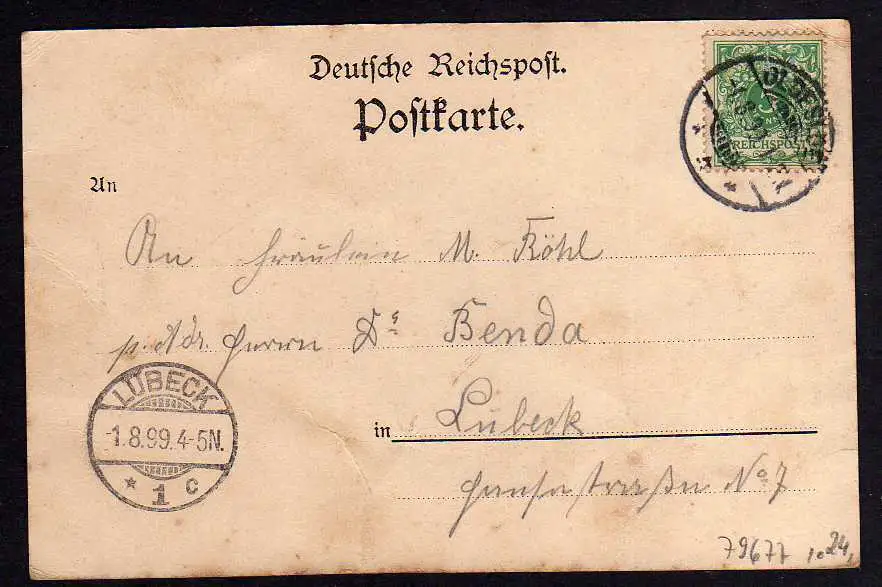 Deutsche Reichspost.
Postkarte.
5
REICHSPOST
An
An Fräulein M. Röhl
p. Adr. Herrn Dr Benda
in Lübeck
Hansastraße No 7
LÜBECK
-1.8.99.4-5N.
* 1 c
79677 10.24,